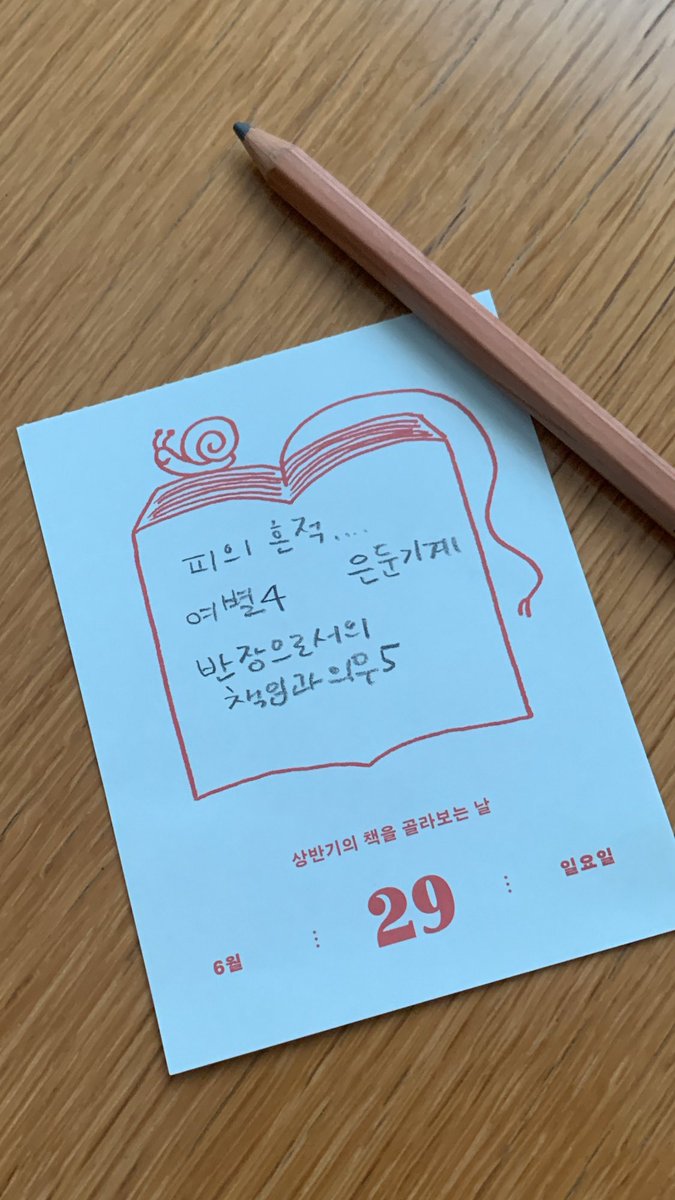 피의 흔적....
은둔기계
여별4
반장으로서의
책임과 의무5
상반기의 책을 골라보는 날
6월 29 일요일